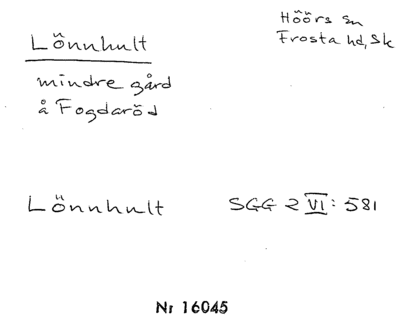 Lönnhult
Höörs sn
Frosta hd, Sk
mindre gård
å Fogdaröd
Lönnhult
SGG 2 VI: 581
Nr 16045